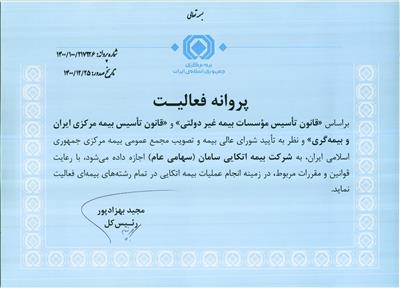 بسمه تعالی
شماره پروانه: ۱۴۰۰/۱۰۰/۲۱۷۹۲۶
تاریخ صدور: ۱۴۰۰/۱۲/۲۵
بیمه مرکزی
جمهوری اسلامی ایران
پروانه فعالیت
براساس «قانون تأسیس مؤسسات بیمه غیر دولتی» و «قانون تأسیس بیمه مرکزی ایران
و بیمه‌گری» و نظر به تأیید شورای عالی بیمه و تصویب مجمع عمومی بیمه مرکزی جمهوری
اسلامی ایران، به شرکت بیمه اتکایی سامان (سهامی عام) اجازه داده می‌شود، با رعایت
قوانین و مقررات مربوط، در زمینه انجام عملیات بیمه اتکایی در تمام رشته‌های بیمه‌ای فعالیت
نماید.
مجید بهزادپور
رئیس کل